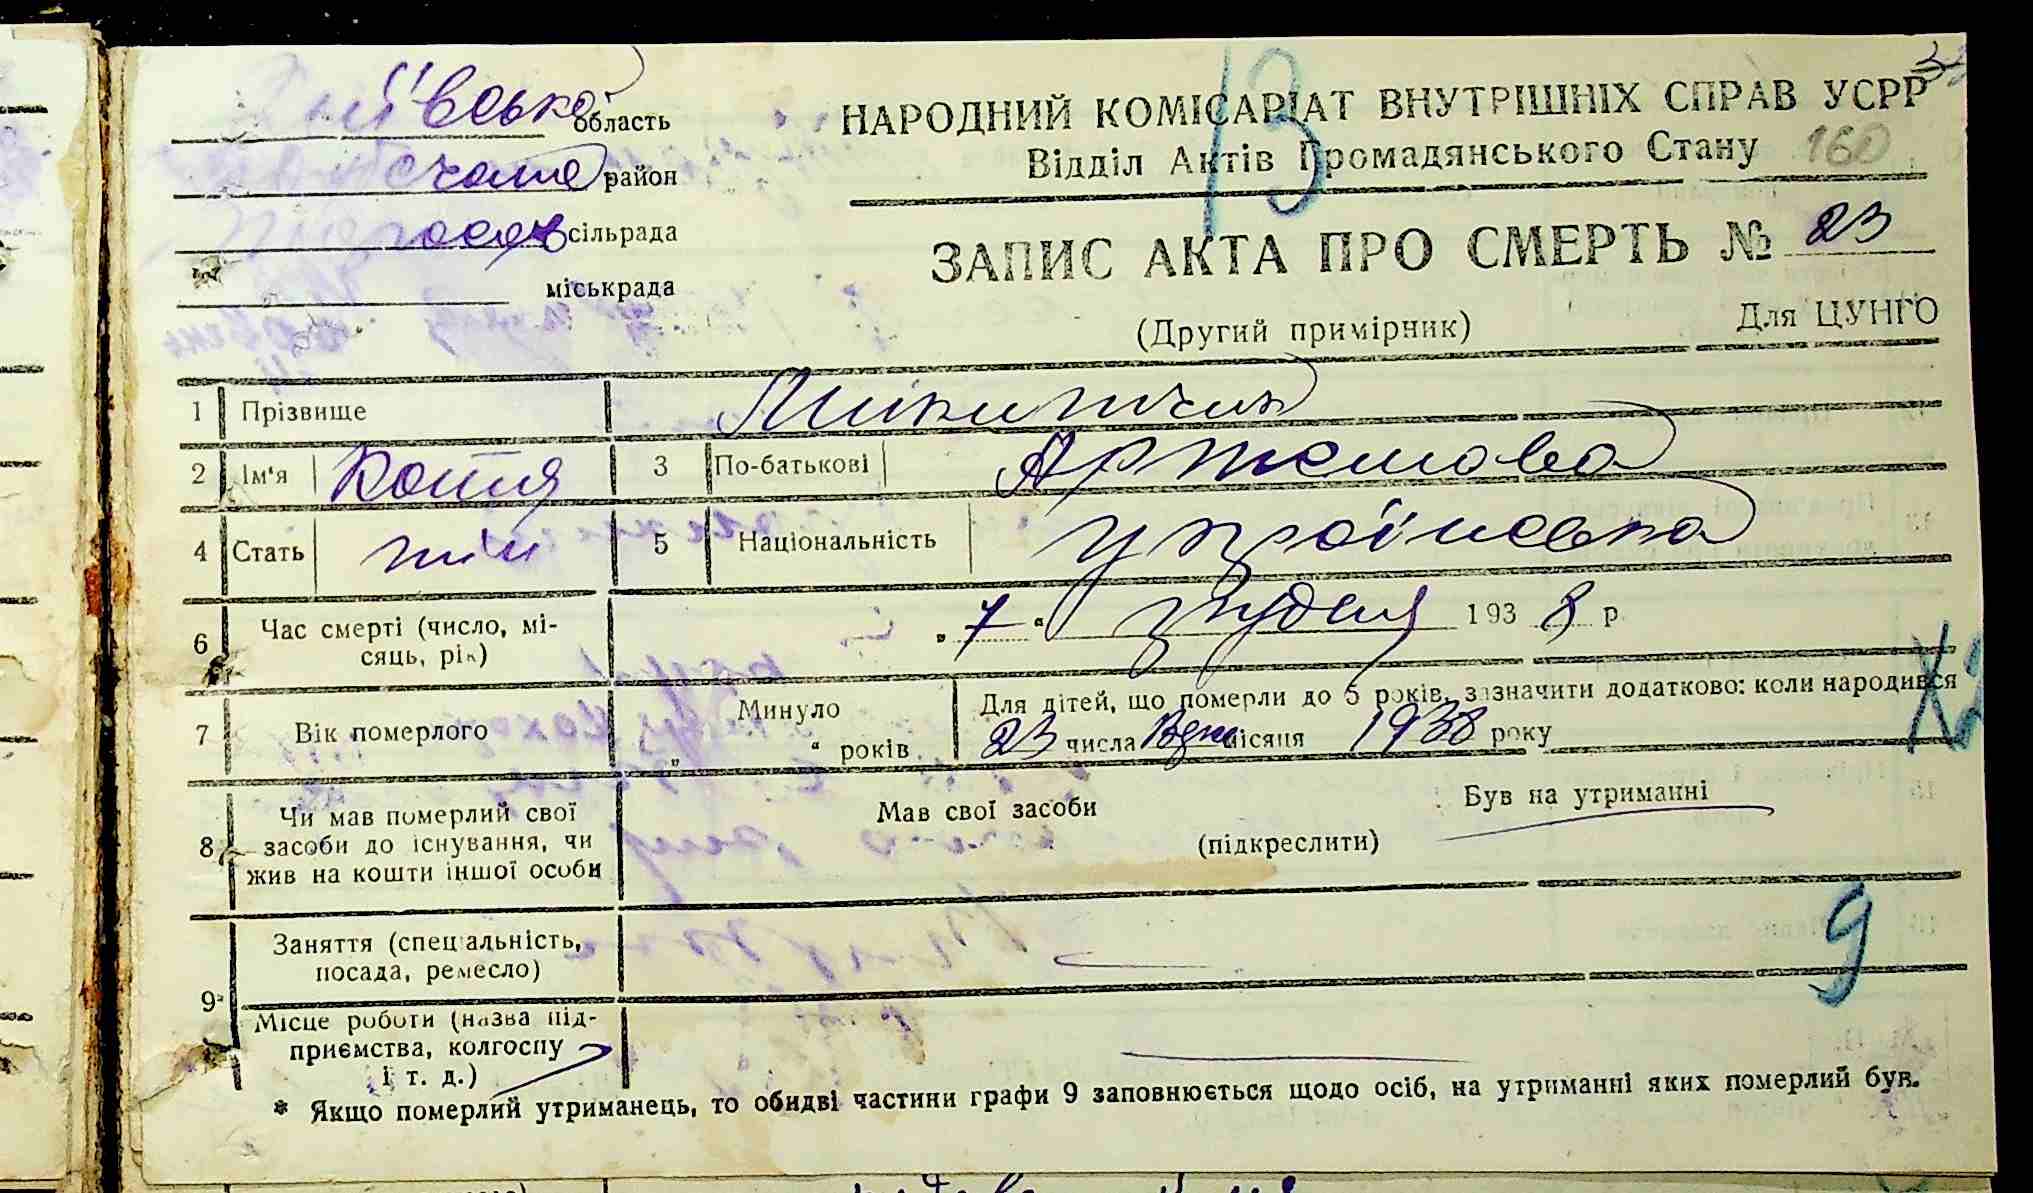 Київська область
район
сільрада
міськрада
НАРОДНИЙ КОМІСАРІАТ ВНУТРІШНІХ СПРАВ УСРР
Відділ Актів Громадянського Стану 160
13
ЗАПИС АКТА ПРО СМЕРТЬ № 23
(Другий примірник) Для ЦУНГО
1 Прізвище Микитчик
2 Ім'я Катя 3 По-батькові Артемова
4 Стать жін 5 Національність українка
6 Час смерті (число, мі-
сяць, рік) „ 7 “ грудня 193 8 р
7 Вік померлого Минуло
„ “ років
Для дітей, що померли до 5 років, зазначити додатково: коли народився
23 числа місяця 1938 року
8 Чи мав померлий свої
засоби до існування, чи
жив на кошти іншої особи
Мав свої засоби Був на утриманні
(підкреслити)
9* Заняття (спеціальність,
посада, ремесло) —
9
Місце роботи (назва під-
приємства, колгоспу
і т. д.) —
* Якщо померлий утриманець, то обидві частини графи 9 заповнюється щодо осіб, на утриманні яких померлий був.